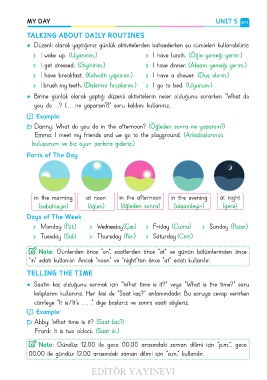 MY DAY
UNIT 5
TALKING ABOUT DAILY ROUTINES
Düzenli olarak yaptığımız günlük aktivitelerden bahsederken şu cümleleri kullanabiliriz:
I wake up. (Uyanırım.) I have lunch. (Öğle yemeği yerim.)
I get dressed. (Giyinirim.) I have dinner. (Akşam yemeği yerim.)
I have breakfast. (Kahvaltı yaparım.) I have a shower. (Duş alırım.)
I brush my teeth. (Dişlerimi fırçalarım.) I go to bed. (Uyurum.)
Birine günlük olarak yaptığı düzenli aktivitelerin neler olduğunu sorarken "What do
you do ...? (... ne yaparsın?)" soru kalıbını kullanırız.
Example:
Danny: What do you do in the afternoon? (Öğleden sonra ne yaparsın?)
Emma: I meet my friends and we go to the playground. (Arkadaşlarımla
buluşurum ve biz oyun parkına gideriz.)
Parts of The Day
in the morning at noon in the afternoon in the evening at night
(sabahleyin) (öğlen) (öğleden sonra) (akşamleyin) (gece)
Days of The Week
Monday (Pzt.) Wednesday (Çar.) Friday (Cuma) Sunday (Pazar)
Tuesday (Salı) Thursday (Per.) Saturday (Cmt.)
Note: Günlerden önce "on", saatlerden önce "at" ve günün bölümlerinden önce
"in" edatı kullanılır. Ancak "noon" ve "night"tan önce "at" edatı kullanılır.
TELLING THE TIME
Saatin kaç olduğunu sormak için "What time is it?" veya "What is the time?" soru
kalıplarını kullanırız. Her ikisi de "Saat kaç?" anlamındadır. Bu soruya cevap verirken
cümleye "It is/It's ... ." diye başlarız ve sonra saati söyleriz.
Example:
Abby: What time is it? (Saat kaç?)
Frank: It is two o'clock. (Saat iki.)
Note: Gündüz 12.00 ile gece 00.00 arasındaki zaman dilimi için "p.m.", gece
00.00 ile gündüz 12.00 arasındaki zaman dilimi için "a.m." kullanılır.
EDİTÖR YAYINEVİ